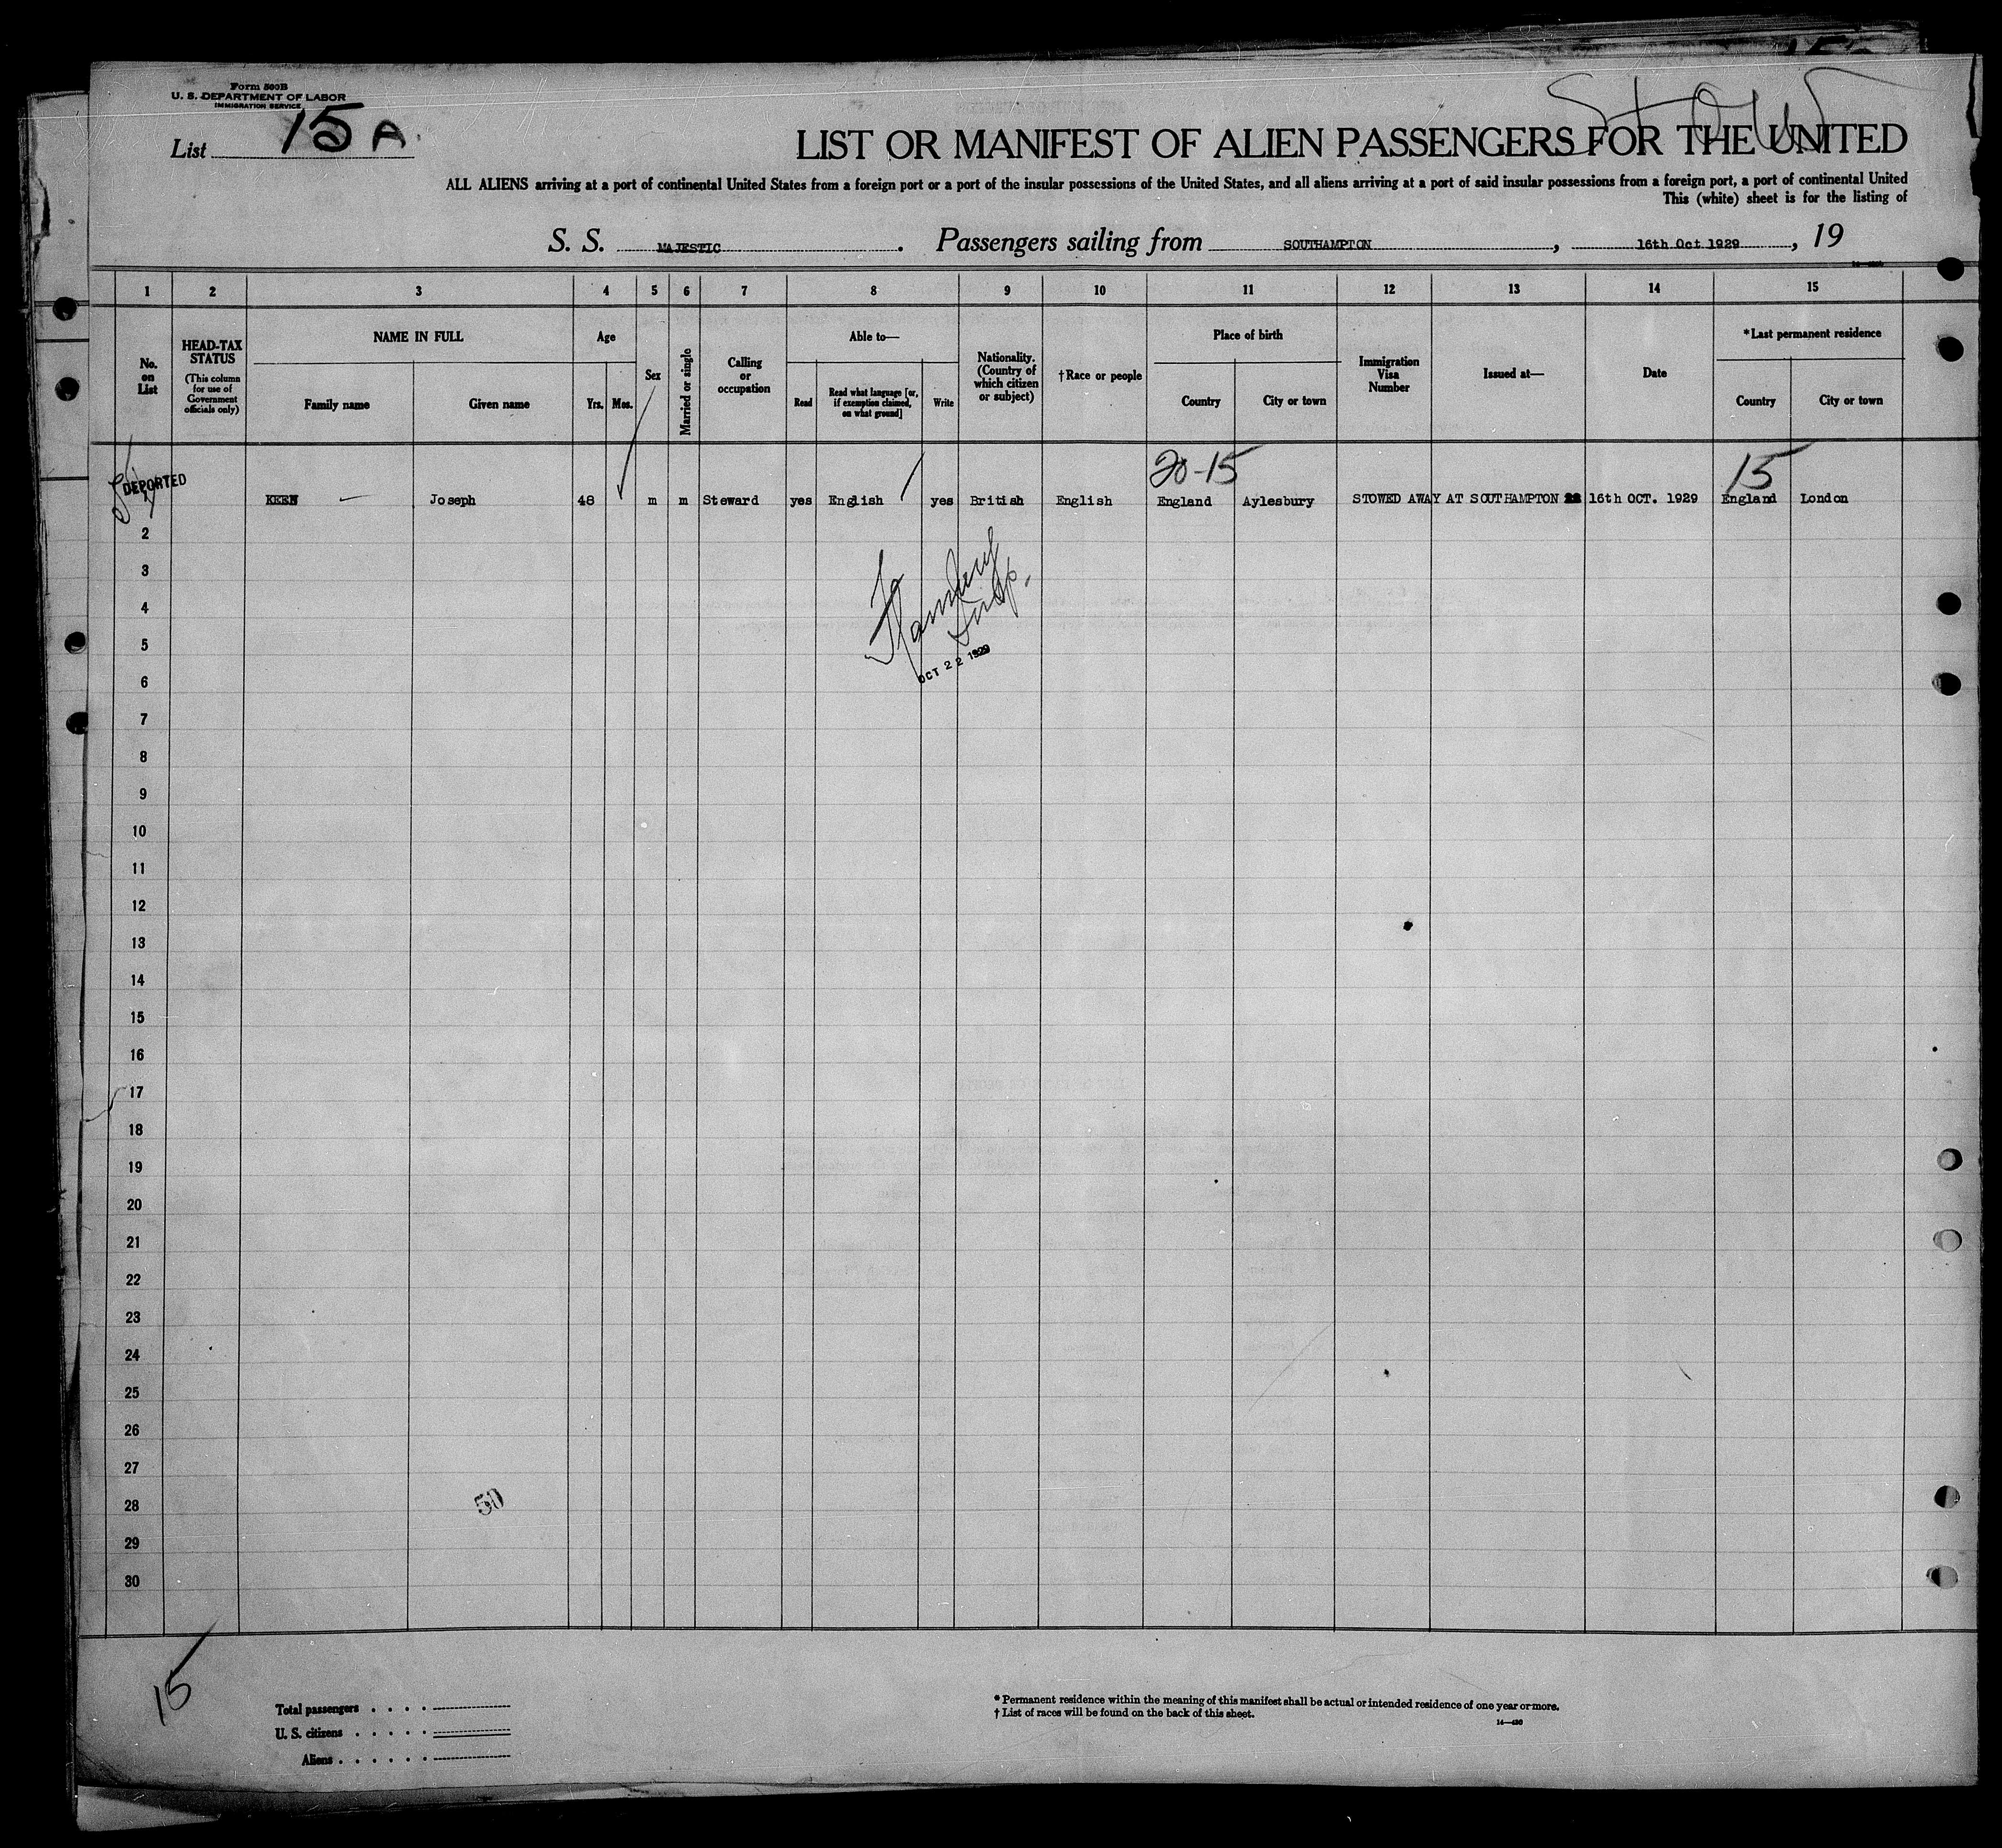 Form 500B
U. S. DEPARTMENT OF LABOR
IMMIGRATION SERVICE
List 15 A
Stow
LIST OR MANIFEST OF ALIEN PASSENGERS FOR THE UNITED
ALL ALIENS arriving at a port of continental United States from a foreign port or a port of the insular possessions of the United States, and all aliens arriving at a port of said insular possessions from a foreign port, a port of continental United
This (white) sheet is for the listing of
S. S. MAJESTIC. Passengers sailing from SOUTHAMPTON, 16th Oct 1929, 19
1 2 3 4 5 6 7 8 9 10 11 12 13 14 15
No. on List
HEAD-TAX STATUS
(This column for use of Government officials only)
NAME IN FULL
Family name
Given name
Age
Yrs.
Mos.
Sex
Married or single
Calling or occupation
Able to—
Read
Read what language [or, if exemption claimed, on what ground]
Write
Nationality. (Country of which citizen or subject)
†Race or people
Place of birth
Country
City or town
Immigration Visa Number
Issued at—
Date
*Last permanent residence
Country
City or town
DEPORTED
20-15
15
KEEN — Joseph 48 m m Steward yes English yes British English England Aylesbury STOWED AWAY AT SOUTHAMPTON 16th OCT. 1929 England London
2
3
4
5
OCT 22 1929
6
7
8
9
10
11
12
13
14
15
16
17
18
19
20
21
22
23
24
25
26
27
28
50
29
30
15
Total passengers
U. S. citizens
Aliens
* Permanent residence within the meaning of this manifest shall be actual or intended residence of one year or more.
† List of races will be found on the back of this sheet.
14—430